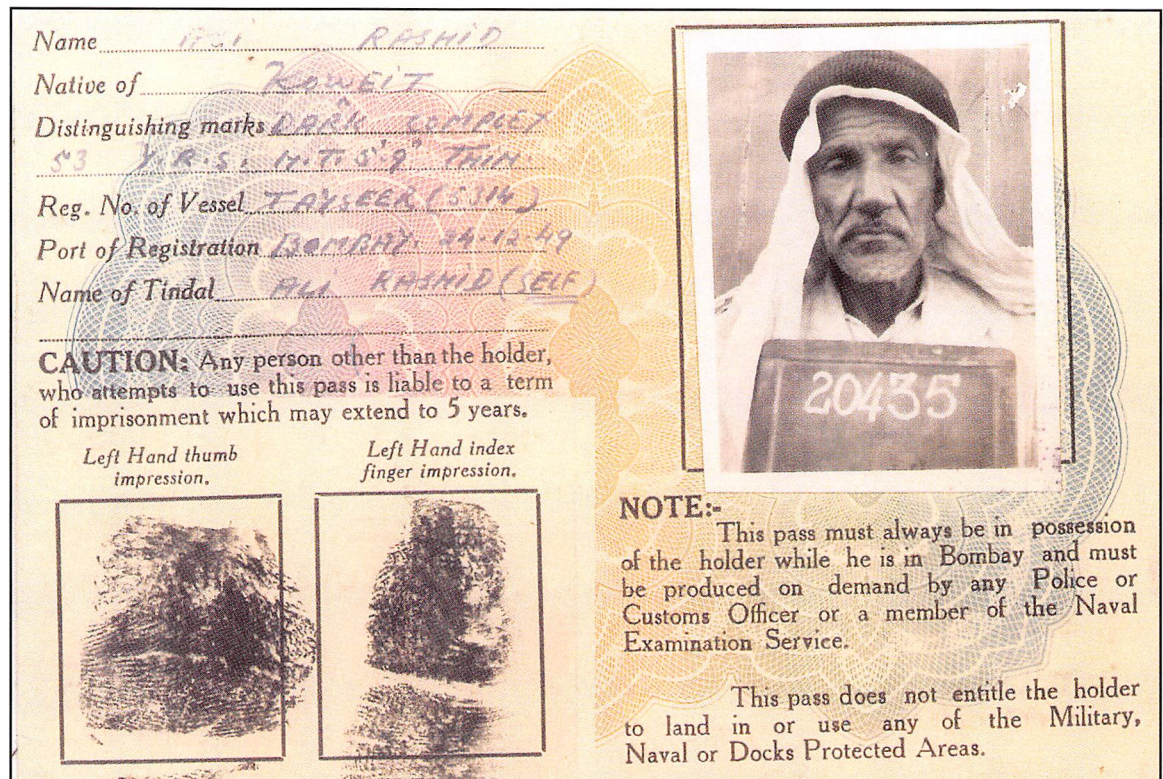 Name ALI RASHID
Native of KOWEIT
Distinguishing marks DARK COMPLEX
53 Y.R.S. H.T. 5'.9" THIN.
Reg. No. of Vessel TAYSEER (5314)
Port of Registration BOMBAY. 24.12.49
Name of Tindal ALI RASHID (SELF)
CAUTION: Any person other than the holder,
who attempts to use this pass is liable to a term
of imprisonment which may extend to 5 years.
Left Hand thumb
impression.
Left Hand index
finger impression.
20435
NOTE:-
This pass must always be in possession
of the holder while he is in Bombay and must
be produced on demand by any Police or
Customs Officer or a member of the Naval
Examination Service.
This pass does not entitle the holder
to land in or use any of the Military,
Naval or Docks Protected Areas.